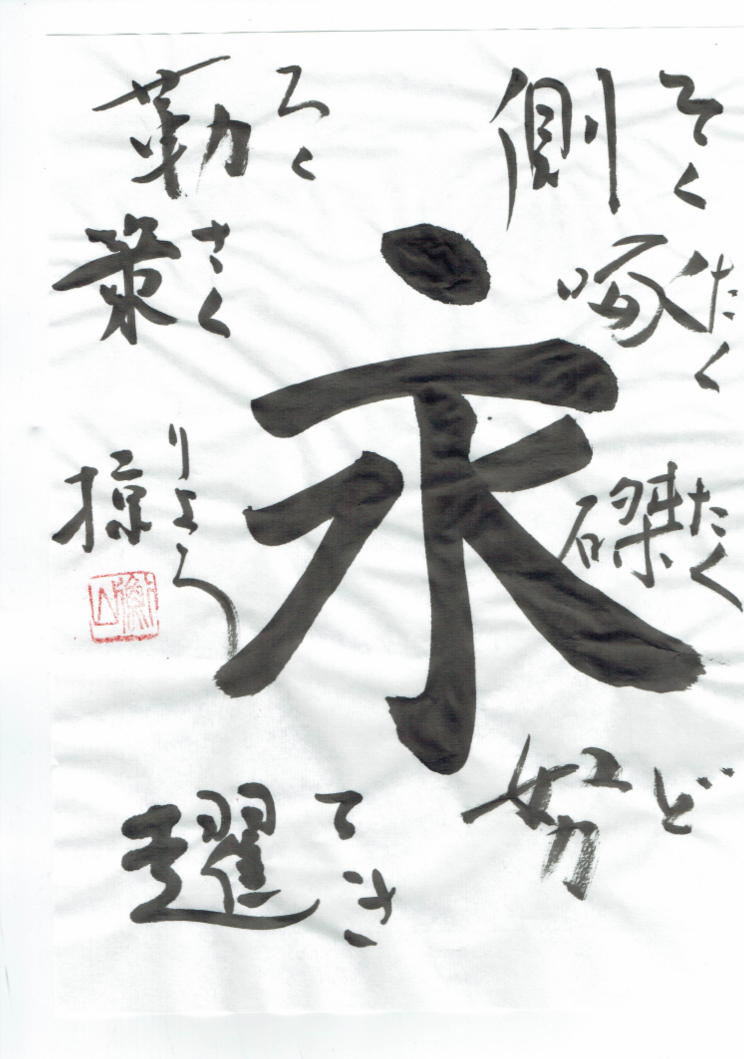 側 そく
勒 ろく
啄 たく
策 さく
永
磔 たく
掠 りょう
努 ど
趯 てき